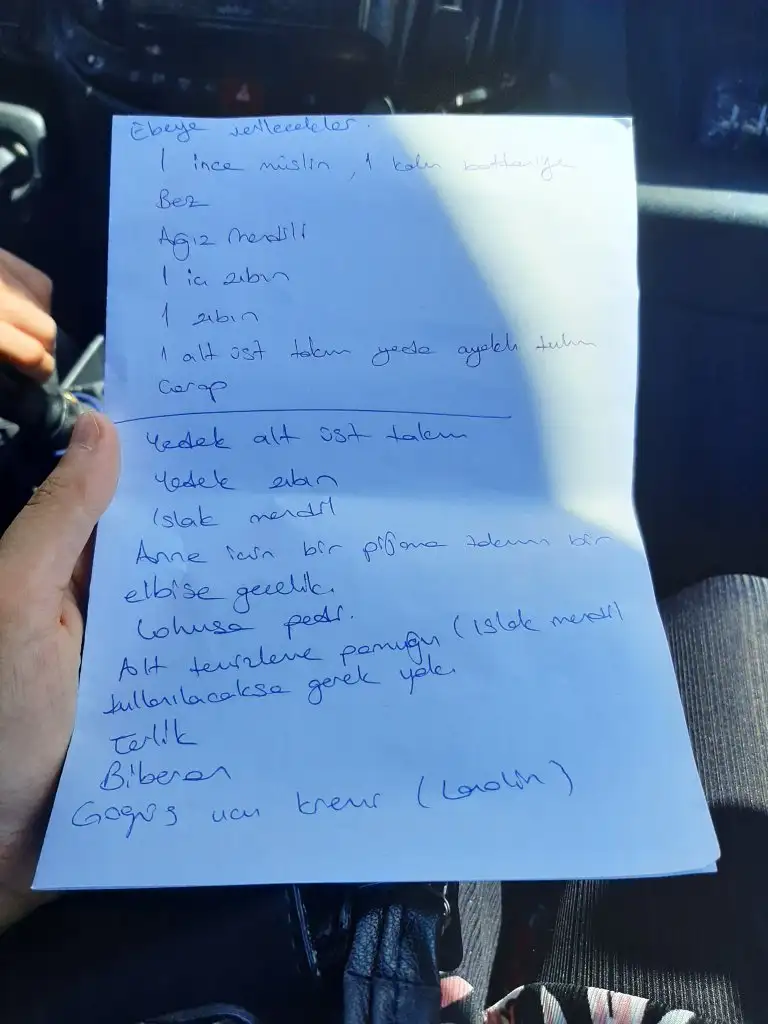 Ebeye verilecekler.
1 ince müslin, 1 kalın battaniye
Bez
Ağız mendili
1 iç zıbın
1 zıbın
1 alt üst takım yada ayaklı tulum
Çorap
Yedek alt üst takım
Yedek zıbın
Islak mendil
Anne için bir pijama takımı bir
elbise gecelik.
Lohusa pedi.
Alt temizleme pamuğu (Islak mendil
kullanılacaksa gerek yok.
Terlik
Biberon
Göğüs ucu kremi (Lanolin)